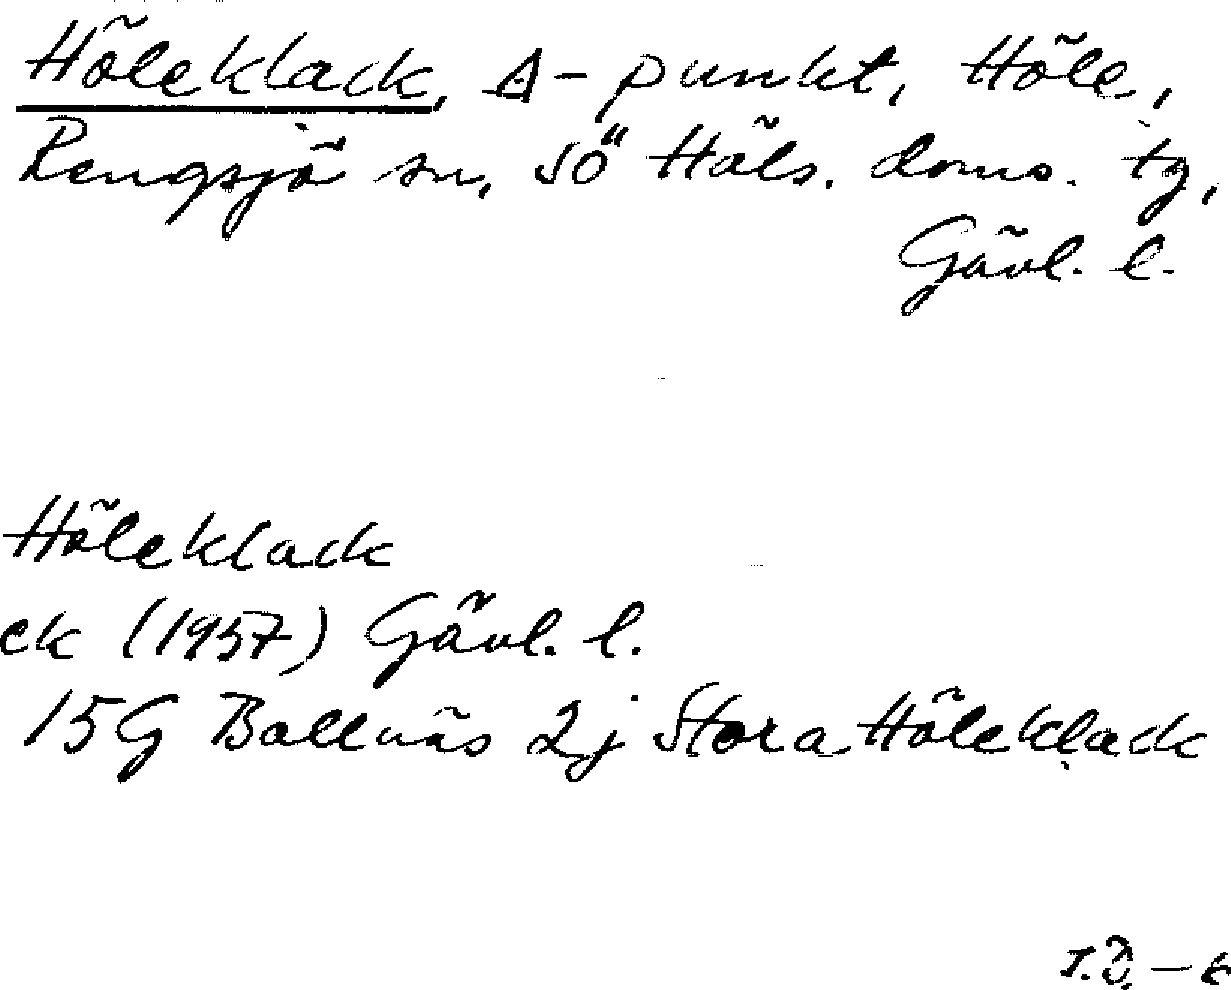 Höleklack, A-punkt, Höle,
Rengsjö sn, SÖ Häls. doms. tg,
Gävl. l.
Höleklack
ek (1957) Gävl. l.
15G Bollnäs 2j Stora Höleklack